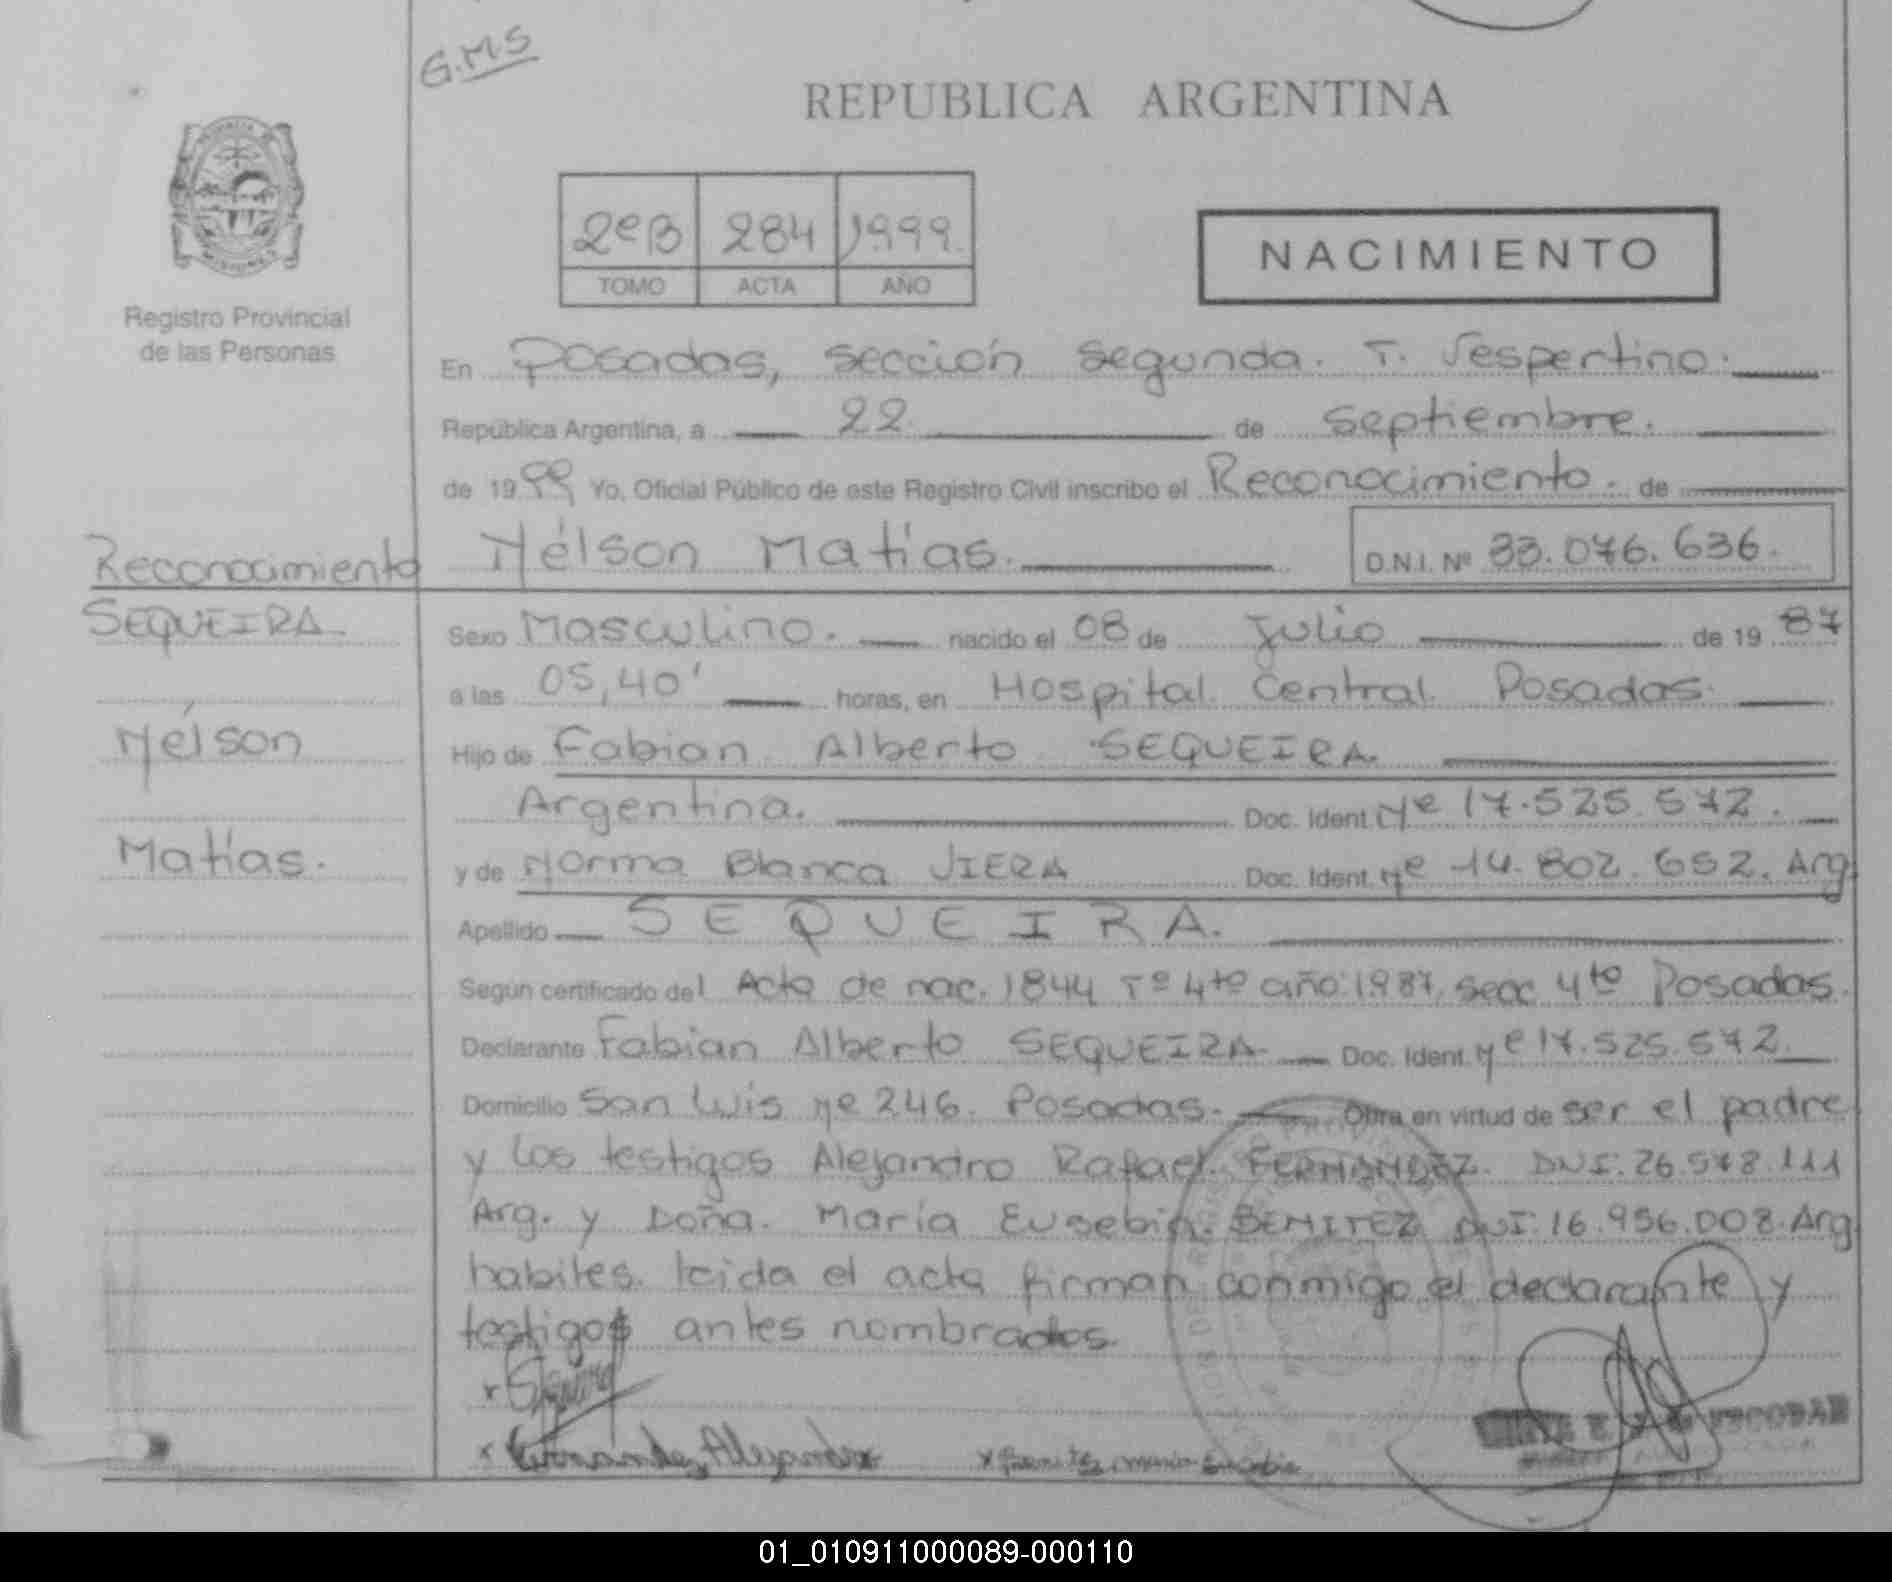 G.M.S
REPUBLICA ARGENTINA
2ºB 284 1999
TOMO ACTA AÑO
NACIMIENTO
Registro Provincial
de las Personas
En Posadas, sección segunda. T. Vespertino.
República Argentina, a 22 de septiembre.
de 1999 Yo, Oficial Público de este Registro Civil inscribo el Reconocimiento. de
Nélson Matías. D.N.I. Nº 33.076.636.
Reconocimiento
SEQUEIRA
Nélson
Matías.
Sexo Masculino. nacido el 08 de Julio de 1987
a las 05,40' horas, en Hospital Central Posadas.
Hijo de Fabian Alberto SEQUEIRA
Argentina. Doc. Ident. Nº 17.525.572.
y de Norma Blanca VIERA Doc. Ident. Nº 14.802.652. Arg
Apellido SEQUEIRA.
Según certificado del Acta de nac. 1844 Tº 4to año:1987, secc 4to Posadas.
Declarante Fabian Alberto SEQUEIRA Doc. Ident. Nº 17.525.572.
Domicilio San Luis Nº 246. Posadas. Obra en virtud de ser el padre
y los testigos Alejandro Rafael FERNANDEZ. DNI. 26.578.111
Arg. y Doña. María Eusebia. BENITEZ DNI. 16.956.008. Arg
habiles. leida el acta firman conmigo el declarante y
testigos antes nombrados.
x Fernández Alejandro x Benitez maria Eusebia
ESCOBAR
01_010911000089-000110